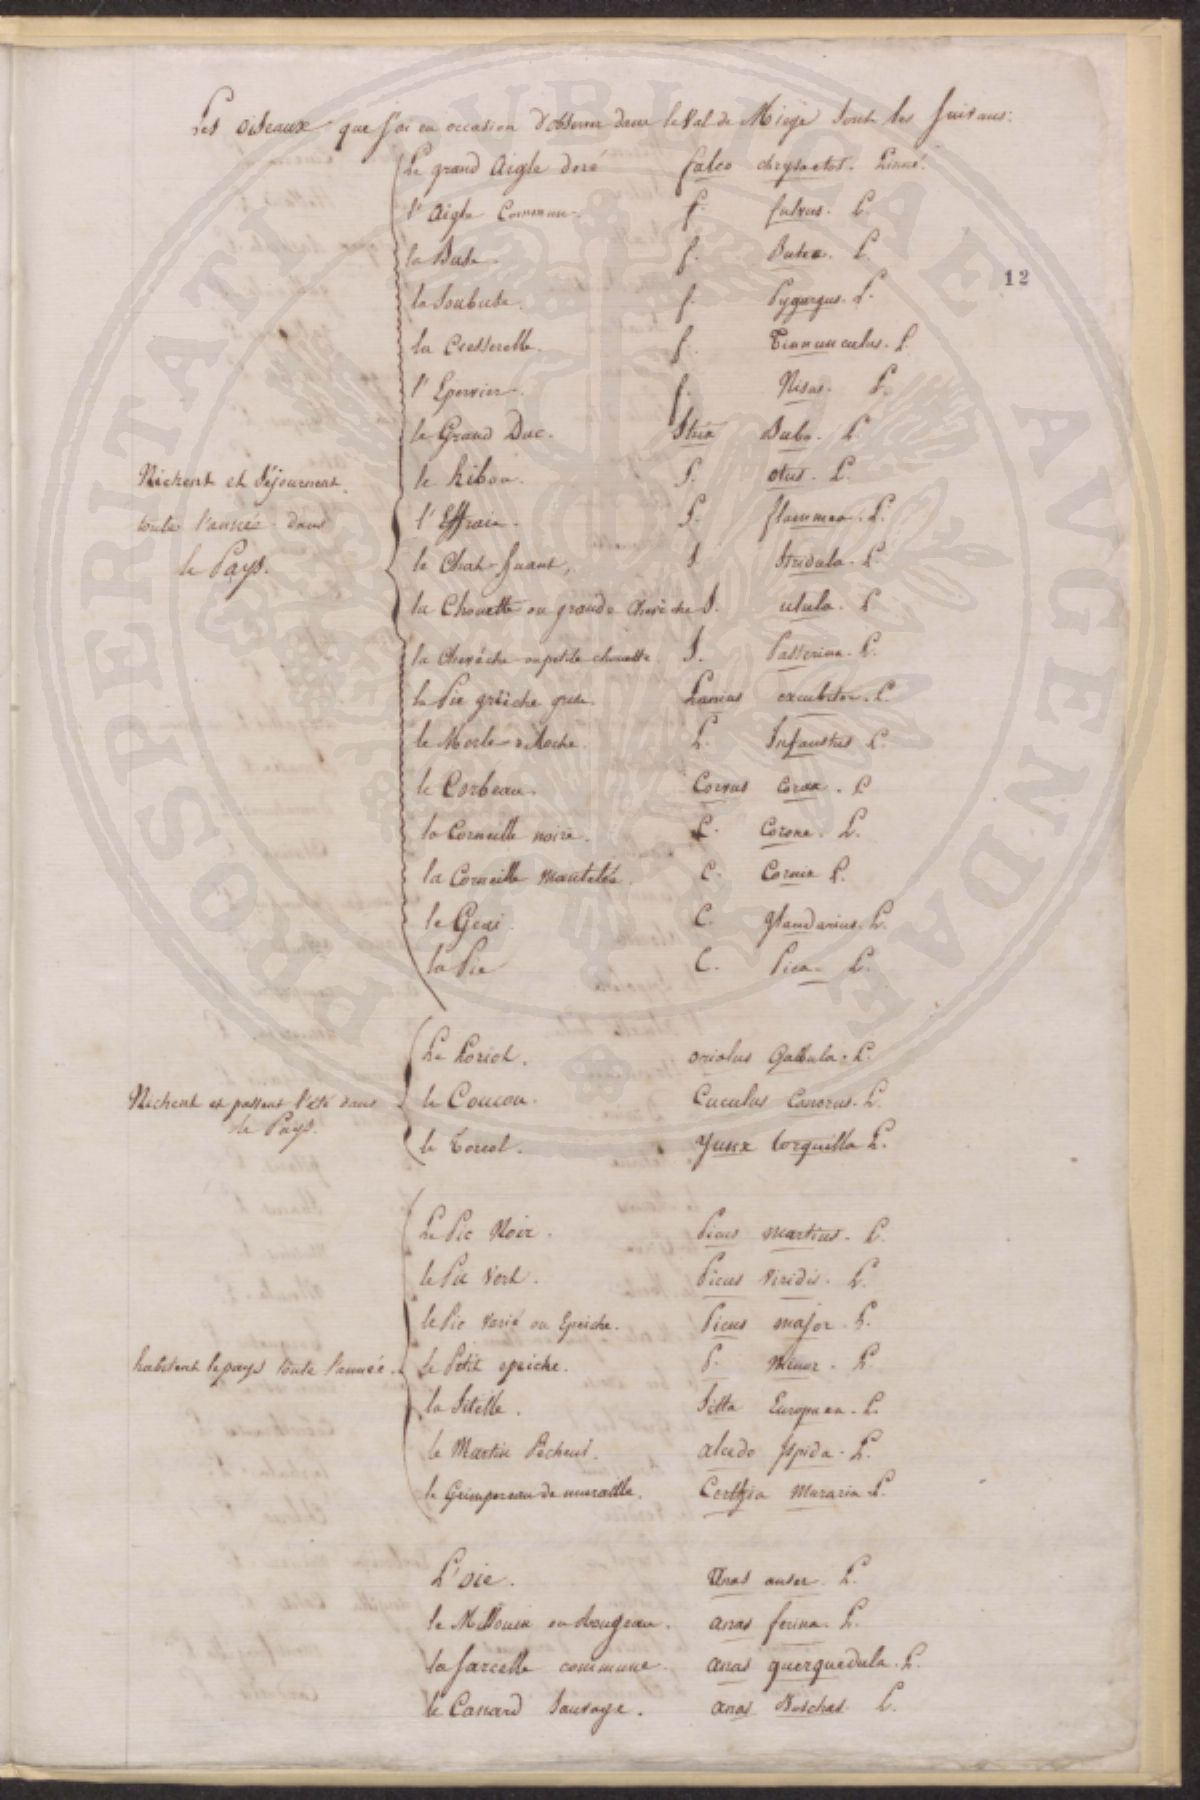 Les oiseaux que j'ai eu occasion d'observer dans le Val de Miège sont les suivans:
12
Le grand Aigle doré falco chrysaetos. Linné.
l'Aigle Commun. f. fulvus. L.
la Buse. f. Buteo. L.
la Soubuse. f. Pygargus. L.
la Cresserelle. f. Tinnunculus. L.
l'Epervier. f. Nisus. L.
le Grand Duc. Strix Bubo. L.
le hibou. S. otus. L.
l'Effraie. S. flammea. L.
le Chat-huant, S. Stridula. L.
la Chouette ou grande Chevêche S. ulula. L.
la Chevêche ou petite chouette. S. Passerina. L.
la Pie grièche grise. Lanius excubitor. L.
le Merle de Roche. L. Infaustus L.
le Corbeau. Corvus corax. L
la Corneille noire. C. Corone. L.
la Corneille mantelée. C. Cornix L.
le Geai. C. glandarius. L.
la Pie C. Pica. L.
Nichent et Séjournent
toute l'année dans
le Pays.
Le Loriot. oriolus Galbula. L.
le Coucou. Cuculus Canorus. L.
le Torcol. Yunx torquilla L.
Nichent et passent l'été dans
le Pays.
Le Pic Noir. Picus martius. L.
le Pic Vert. Picus Viridis. L.
le Pic Varié ou Epeiche. Picus major. L.
le Petit epeiche. P. minor. L.
la Sitelle. Sitta Europaea. L.
le Martin Pêcheur. alcedo Ispida. L.
le Grimpereau de muraille. Certhia Muraria L.
habitent le pays toute l'année.
L'oie. Anas anser. L.
le Millouin ou rougeau. anas ferina. L.
la Sarcelle commune. anas querquedula. L.
le Canard Sauvage. anas Boschas. L.
PROSPERITATI PUBLICAE AVGENDAE